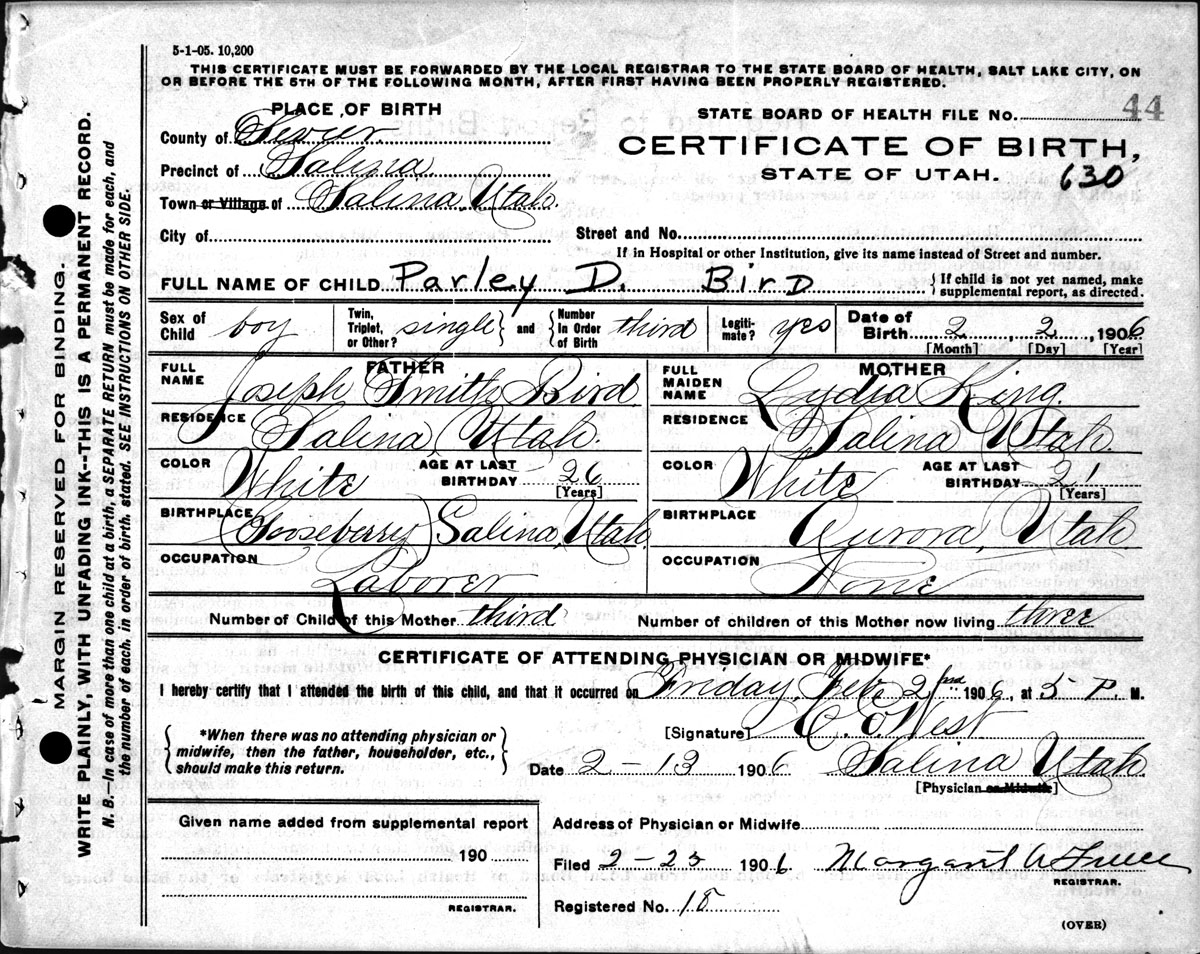 5-1-05. 10,200
THIS CERTIFICATE MUST BE FORWARDED BY THE LOCAL REGISTRAR TO THE STATE BOARD OF HEALTH, SALT LAKE CITY, ON
OR BEFORE THE 5TH OF THE FOLLOWING MONTH, AFTER FIRST HAVING BEEN PROPERLY REGISTERED.
PLACE OF BIRTH
County of Sevier
Precinct of Salina
Town or Village of Salina, Utah.
City of
STATE BOARD OF HEALTH FILE No. 44
CERTIFICATE OF BIRTH,
STATE OF UTAH. 630
Street and No.
If in Hospital or other Institution, give its name instead of Street and number.
FULL NAME OF CHILD Parley D. Bird {If child is not yet named, make
supplemental report, as directed.
Sex of Child boy Twin, Triplet, or Other? single} and {Number In Order of Birth third Legiti-mate? yes Date of Birth 2, 2, 1906
[Month] [Day] [Year]
FATHER
FULL NAME Joseph Smith Bird
RESIDENCE Salina, Utah.
COLOR White AGE AT LAST BIRTHDAY 26
[Years]
BIRTHPLACE (Gooseberry) Salina, Utah.
OCCUPATION Laborer
MOTHER
FULL MAIDEN NAME Lydia King.
RESIDENCE Salina Utah.
COLOR White AGE AT LAST BIRTHDAY 21
[Years]
BIRTHPLACE Aurora, Utah.
OCCUPATION None
Number of Child of this Mother third Number of children of this Mother now living three
CERTIFICATE OF ATTENDING PHYSICIAN OR MIDWIFE*
I hereby certify that I attended the birth of this child, and that it occurred on Friday, Feb. 2nd 1906, at 5 P. M.
{*When there was no attending physician or
midwife, then the father, householder, etc.,
should make this return.}
[Signature] C. O. West
Date 2-13 1906 Salina Utah.
[Physician or Midwife]
Given name added from supplemental report
190
REGISTRAR.
Address of Physician or Midwife
Filed 2-23 1906 Margaret A
REGISTRAR.
Registered No. 18
(OVER)
MARGIN RESERVED FOR BINDING.
WRITE PLAINLY, WITH UNFADING INK--THIS IS A PERMANENT RECORD.
N. B.—In case of more than one child at a birth, a SEPARATE RETURN must be made for each, and
the number of each, in order of birth, stated. SEE INSTRUCTIONS ON OTHER SIDE.